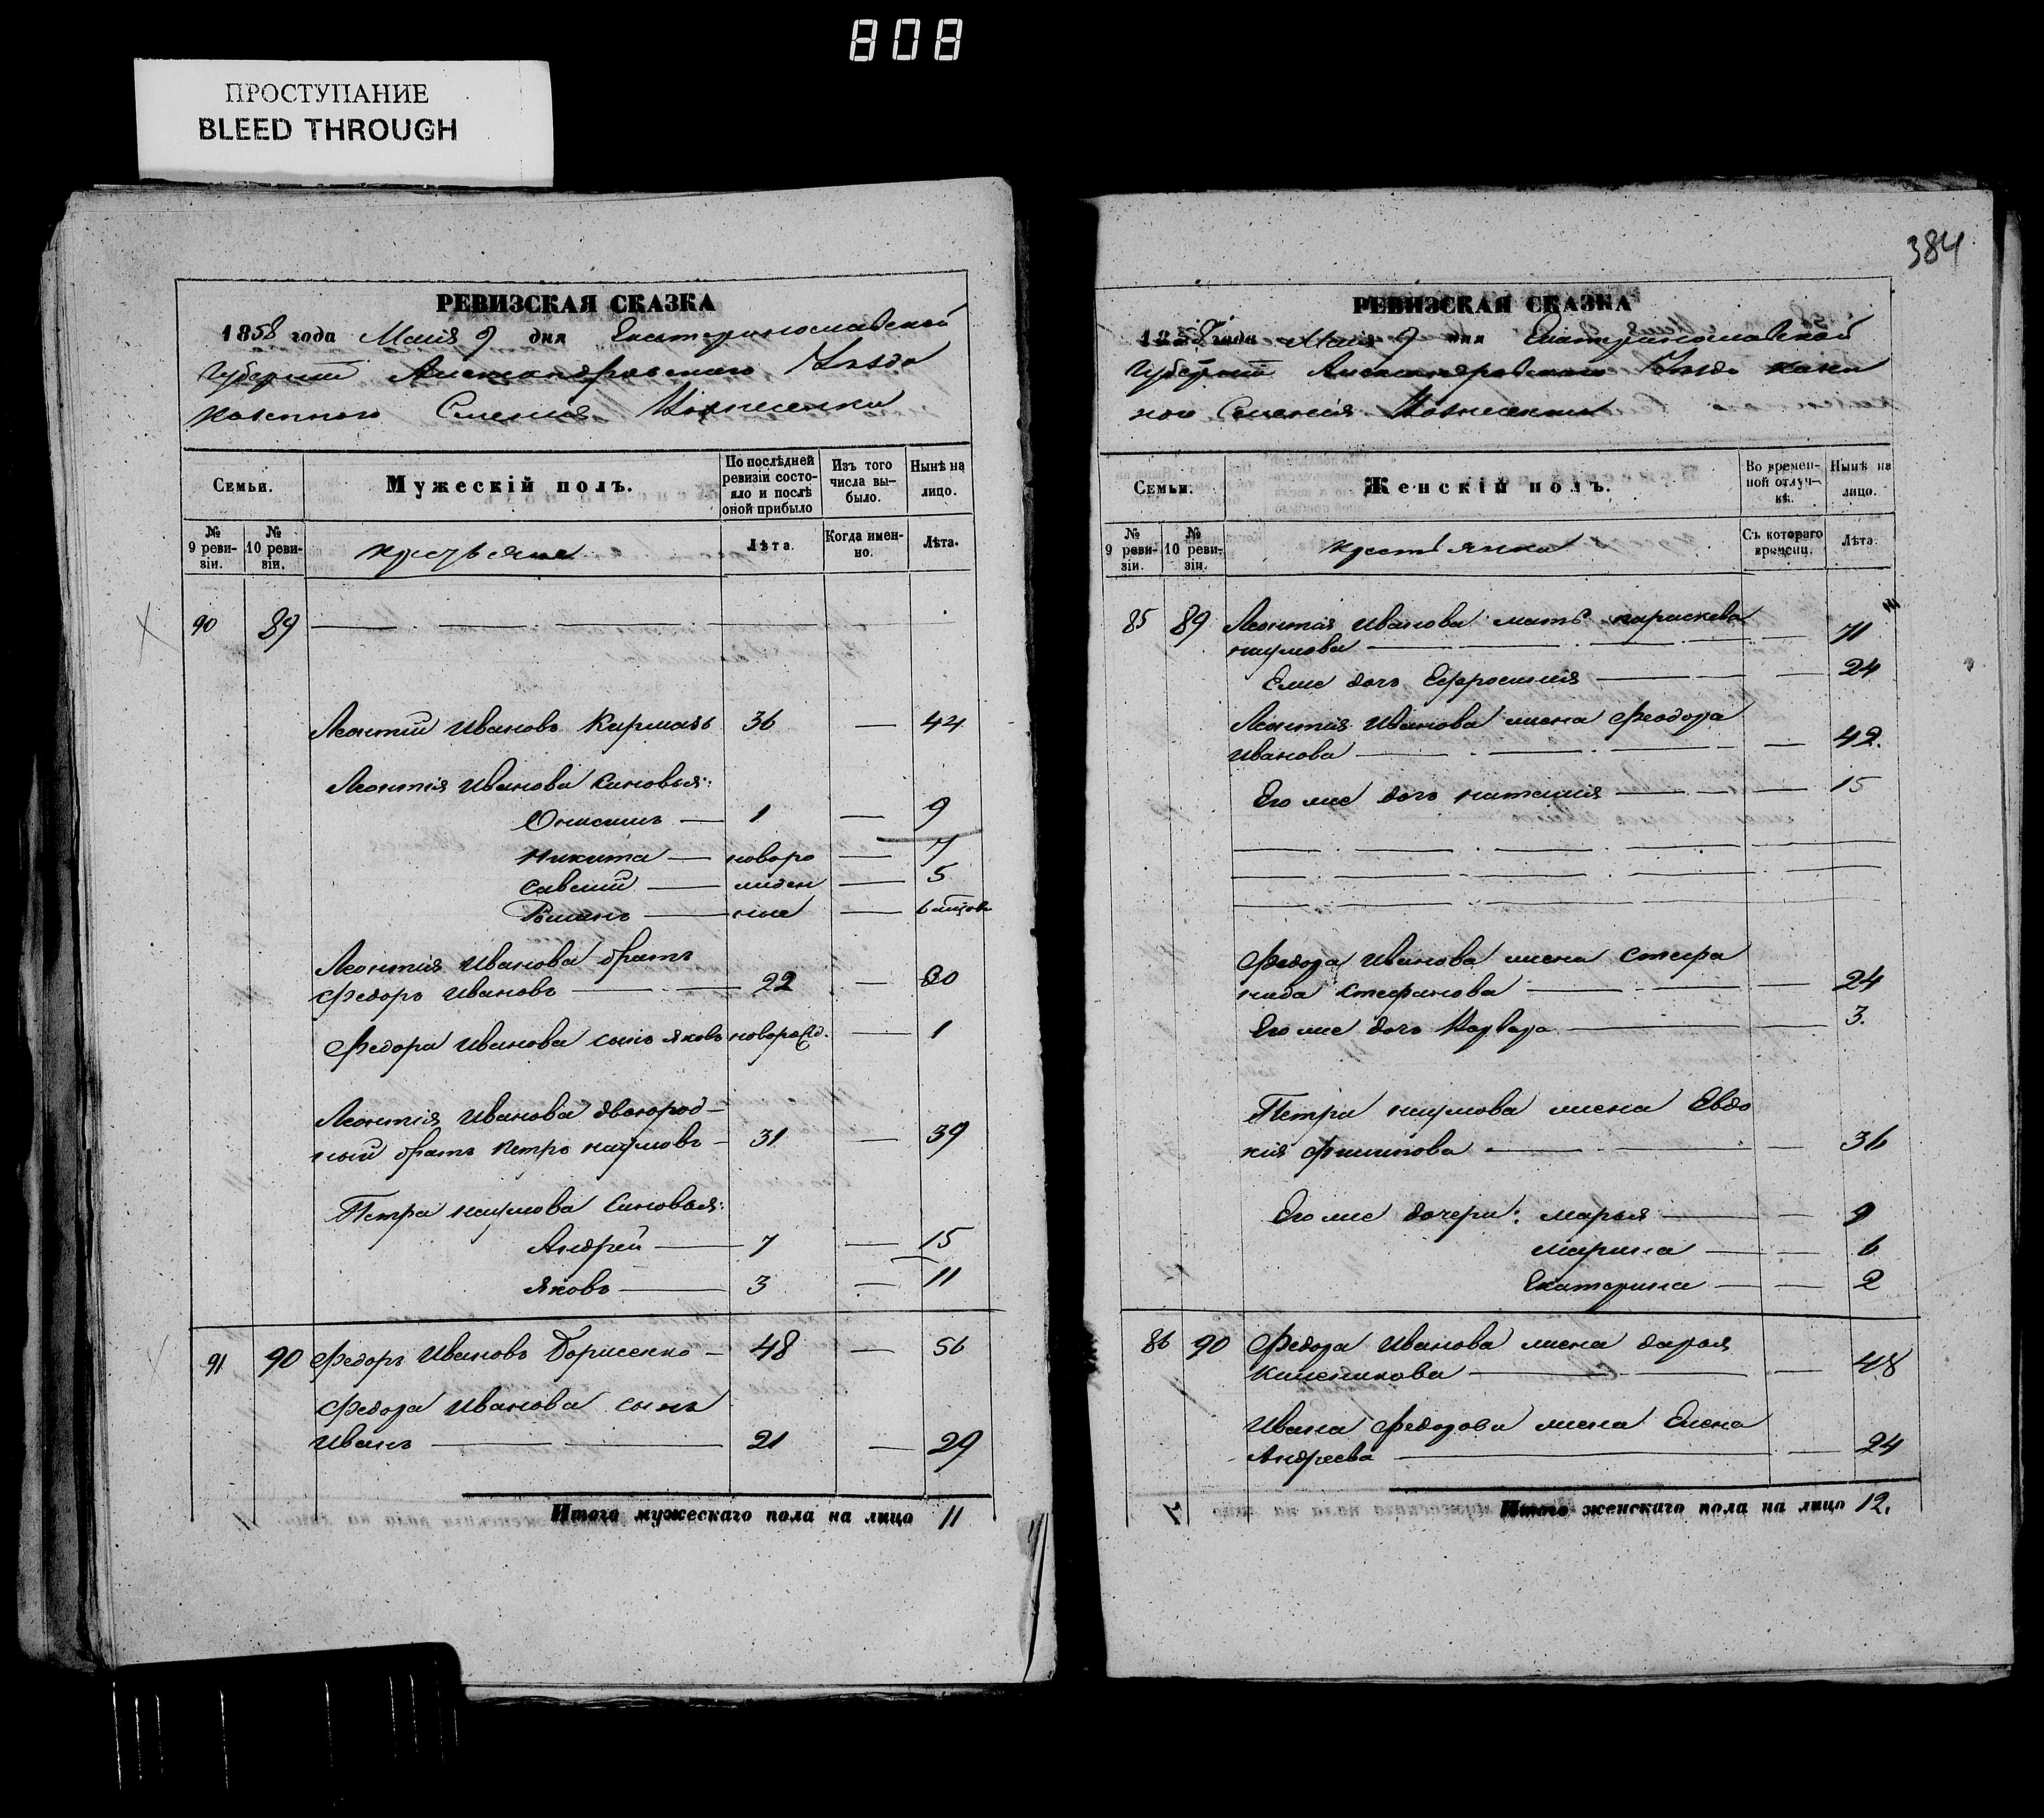 808
ПРОСТУПАНИЕ
BLEED THROUGH
РЕВИЗСКАЯ СКАЗКА
1858 года Маія 9 дня Екатеринославской
Губерніи Александровскаго Уѣзда
казенного Селенія Вознесенки
Семьи.
Мужескій полъ.
По послѣдней ревизіи состояло и послѣ оной прибыло
Изъ того числа выбыло.
Нынѣ на лицо.
№ 9 ревизіи.
№ 10 ревизіи.
крестьяне
Лѣта.
Когда именно.
Лѣта.
90 89
Леонтій Ивановъ Кирмазъ 36 — 44
Леонтія Иванова Синовья:
Онисимъ — 1 — 9
Никита — новоро — 7
Савелій — жден — 5
Романъ — ные — 6 мѣсов
Леонтія Иванова братъ
Федоръ Ивановъ — 22 — 30
Федора Иванова сынъ Яковъ новорожд. — 1
Леонтія Иванова двоюрод-
ный братъ Петръ Наумовъ — 31 — 39
Петра Наумова Синовья:
Андрей — 7 — 15
Яковъ — 3 — 11
91 90 Федоръ Ивановъ Борисенко — 48 — 56
Федора Иванова сынъ
Иванъ — 21 — 29
Итого мужескаго пола на лицо 11
384
РЕВИЗСКАЯ СКАЗКА
1858 года Маія 9 дня Екатеринославской
Губерніи Александровскаго Уѣзда казен
ного Селенія Вознесенки
Семьи.
Женскій полъ.
Во временной отлучкѣ.
Нынѣ на лицо.
№ 9 ревизіи.
№ 10 ревизіи.
крестьянки
Съ котораго времени.
Лѣта.
85 89 Леонтія Иванова мать параскева
наумова — 71
Елие дочь Ефросинія — 24
Леонтія Иванова жена Феодора
Иванова — 42.
Его же дочь наталия — 15
Федора Иванова жена Стефа
нида Стефанова — 24
Его же дочь Варвара — 3.
Петра наумова жена Евдо
кия Филипова — 36
Его же дочери: марья — 9
марина — 6
Екатерина — 2
86 90 Федора Иванова жена дарья
— 48
Ивана Федорова жена Елена
Андреева — 24
Итого женскаго пола на лицо 12.